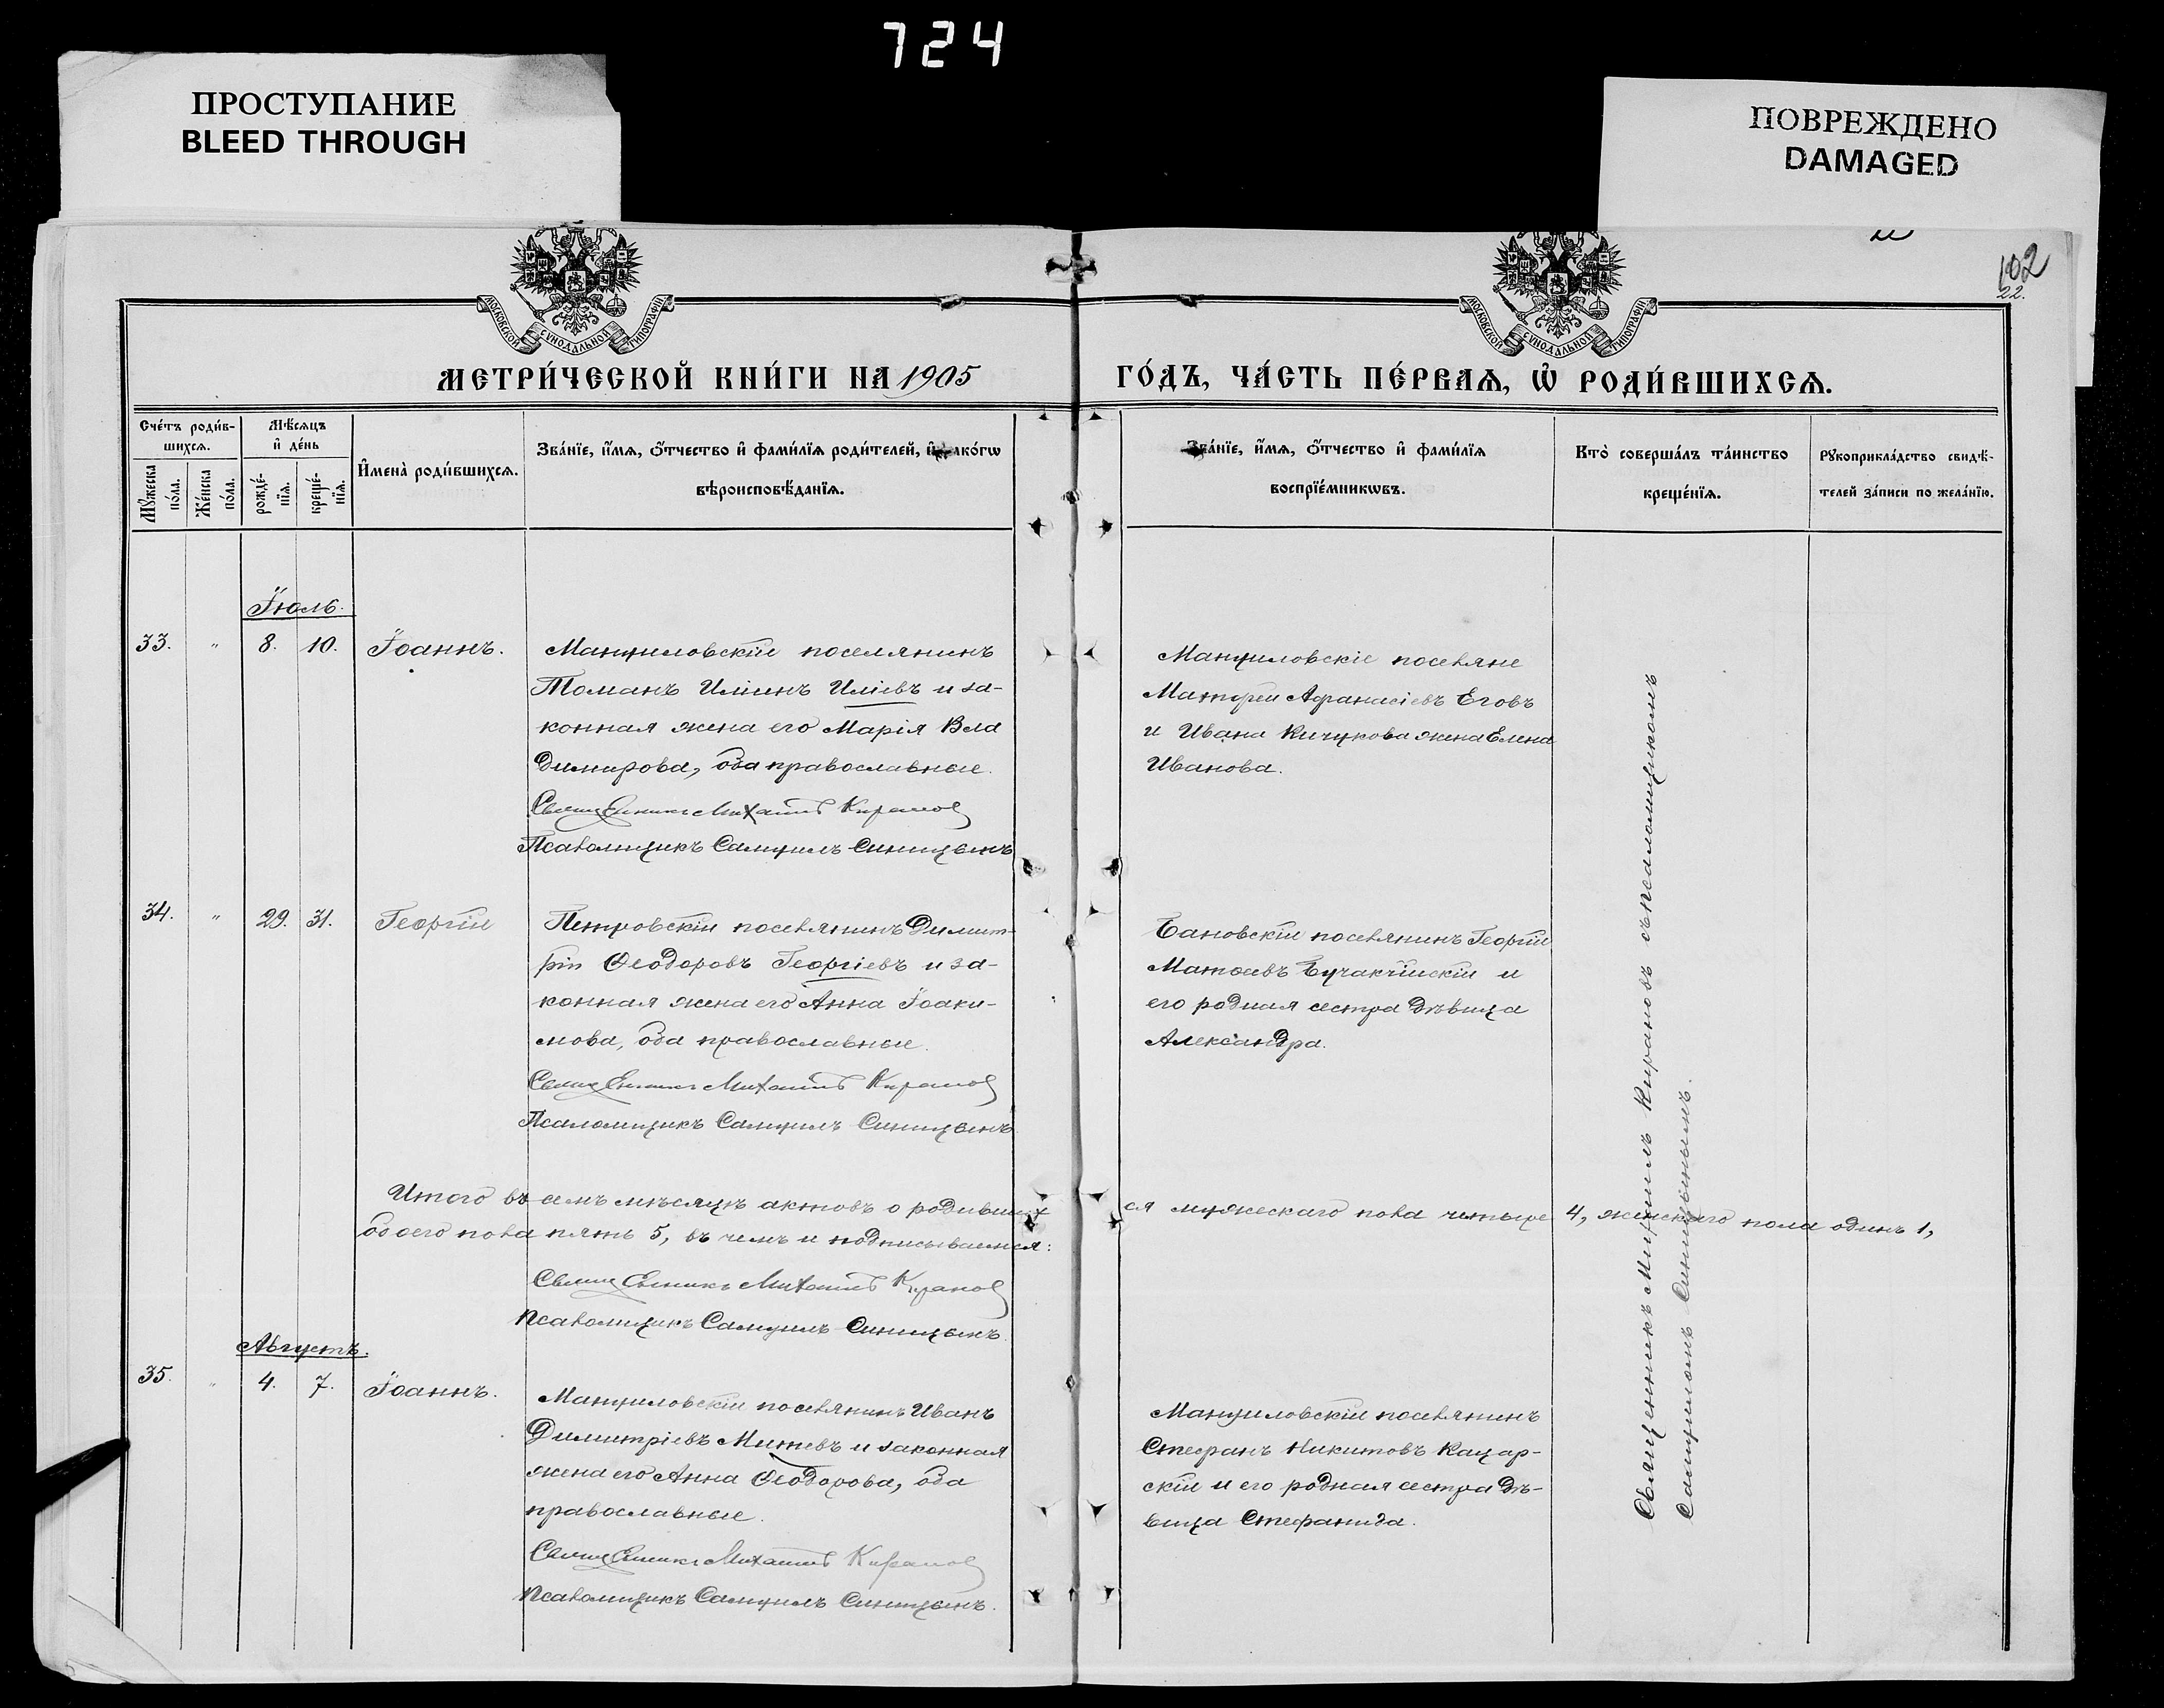 724
ПРОСТУПАНИЕ
BLEED THROUGH
ПОВРЕЖДЕНО
DAMAGED
102
22.
МОСКОВСКОЙ СѴНОДАЛЬНОЙ ТИПОГРАФІИ
МОСКОВСКОЙ СѴНОДАЛЬНОЙ ТИПОГРАФІИ
МЕТРИ́ЧЕСКОЙ КНИ́ГИ НА 1905 ГО́ДЪ, ЧА́СТЬ ПЕ́РВАѦ, Ѡ҆ РОДИ́ВШИХСѦ.
Сче́тъ роди́в-
шихсѧ.
Мꙋ́жеска
по́ла.
Же́нска
по́ла.
Мѣ́сѧцъ
и҆ де́нь
рожде́-
нїѧ.
креще́-
нїѧ.
И҆мена̀ роди́вшихсѧ.
Зва́нїе, и҆́мѧ, ѻ҆́тчество и҆ фами́лїѧ роди́телей, и҆ како́гѡ
вѣроисповѣ́данїѧ.
Зва́нїе, и҆́мѧ, ѻ҆́тчество и҆ фами́лїѧ
воспрїе́мникѡвъ.
Кто̀ соверша́лъ та́инство
креще́нїѧ.
Рꙋкоприкла́дство свидѣ́-
телей за́писи по жела́нїю.
Іюль.
33. " 8. 10. Іоаннъ.
Мануиловскій поселянинъ
Томанъ Иліинъ Иліевъ и за-
конная жена его Марія Вла
димирова, оба православные.
Священникъ Михаилъ Киранов
Псаломщикъ Самуилъ Синицынъ
Мануиловскіе поселяне
Матфей Афанасіевъ Еговъ
и Ивана Кичукова жена Елена
Иванова.
34. " 29. 31. Георгій
Петровскій поселянинъ Димит-
рій Ѳеодоровъ Георгіевъ и за-
конная жена его Анна Іоаки-
мова, оба православные.
Священникъ Михаилъ Киранов
Псаломщикъ Самуилъ Синицынъ
Бановскій поселянинъ Георгій
Матѳевъ Бучакчійскій и
его родная сестра дѣвица
Александра.
Итого въ семъ мѣсяцѣ актовъ о родивших
ся мужескаго пола четыре 4, женскаго пола одинъ 1,
обоего пола пять 5, въ чемъ и подписываемся:
Священникъ Михаилъ Киранов
Псаломщикъ Самуилъ Синицынъ.
Августъ.
35. " 4. 7. Іоаннъ.
Мануиловскій поселянинъ Иванъ
Димитріевъ Митевъ и законная
жена его Анна Ѳеодорова, оба
православные.
Священникъ Михаилъ Киранов
Псаломщикъ Самуилъ Синицынъ.
Мануиловскій поселянинъ
Стефанъ Никитовъ Кацар-
скій и его родная сестра дѣ-
вица Стефанида.
Священникъ Михаилъ Кирановъ съ псаломщикомъ
Самуиломъ Синицынымъ.